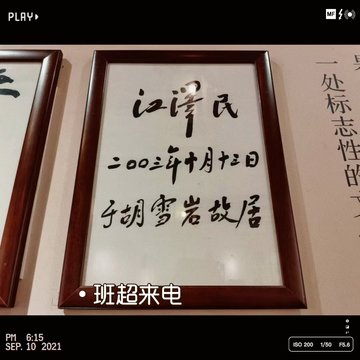 PLAY
MF
江澤民
二〇〇三年十月十三日
于胡雪岩故居
一处标志性的
班超来电
PM 6:15
SEP. 10 2021
ISO 200 1/50 F5.6